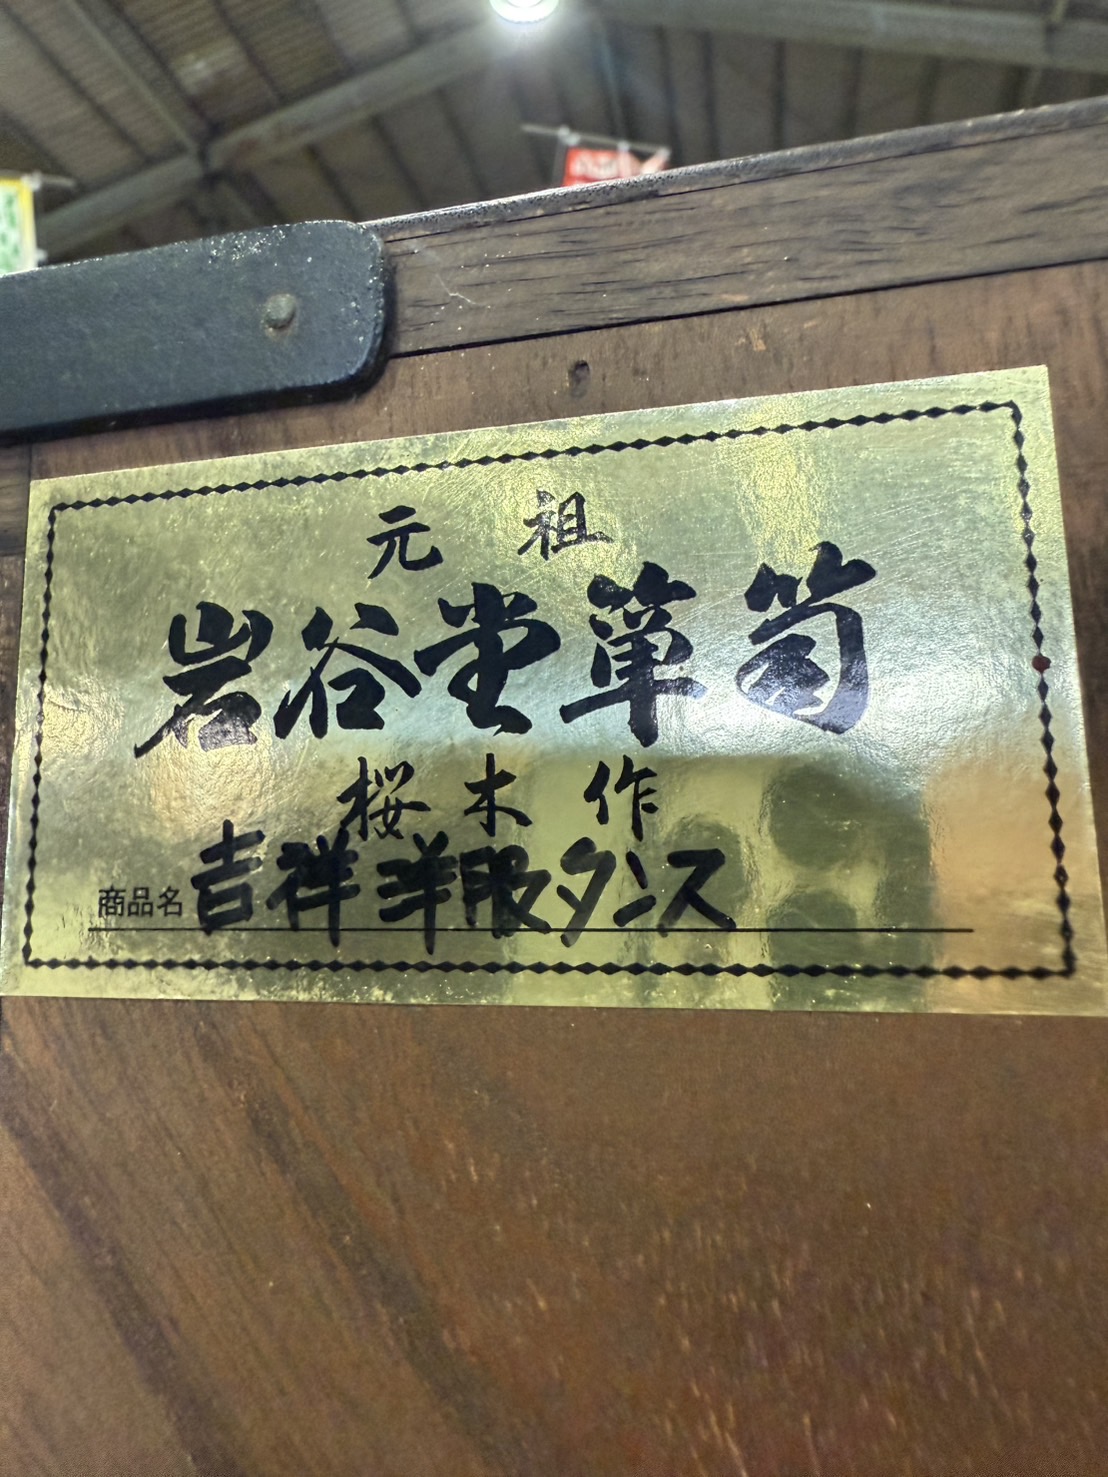 元祖
岩谷堂箪笥
桜木作
商品名 吉祥洋服タンス